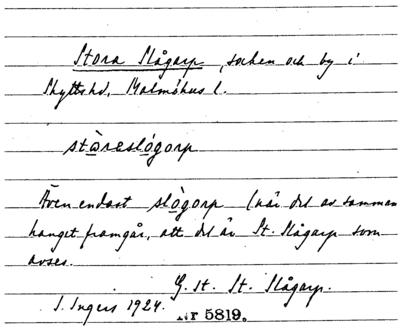 Stora Slågarp, socken och by i
Skyttshd, Malmöhus l.
stòreslógorp
Även endast slògorp (när det av samman
hanget framgår, att det är St. Slågarp som
avses.
G. st. St. Slågarp.
I. Ingers 1924. Nr 5819.